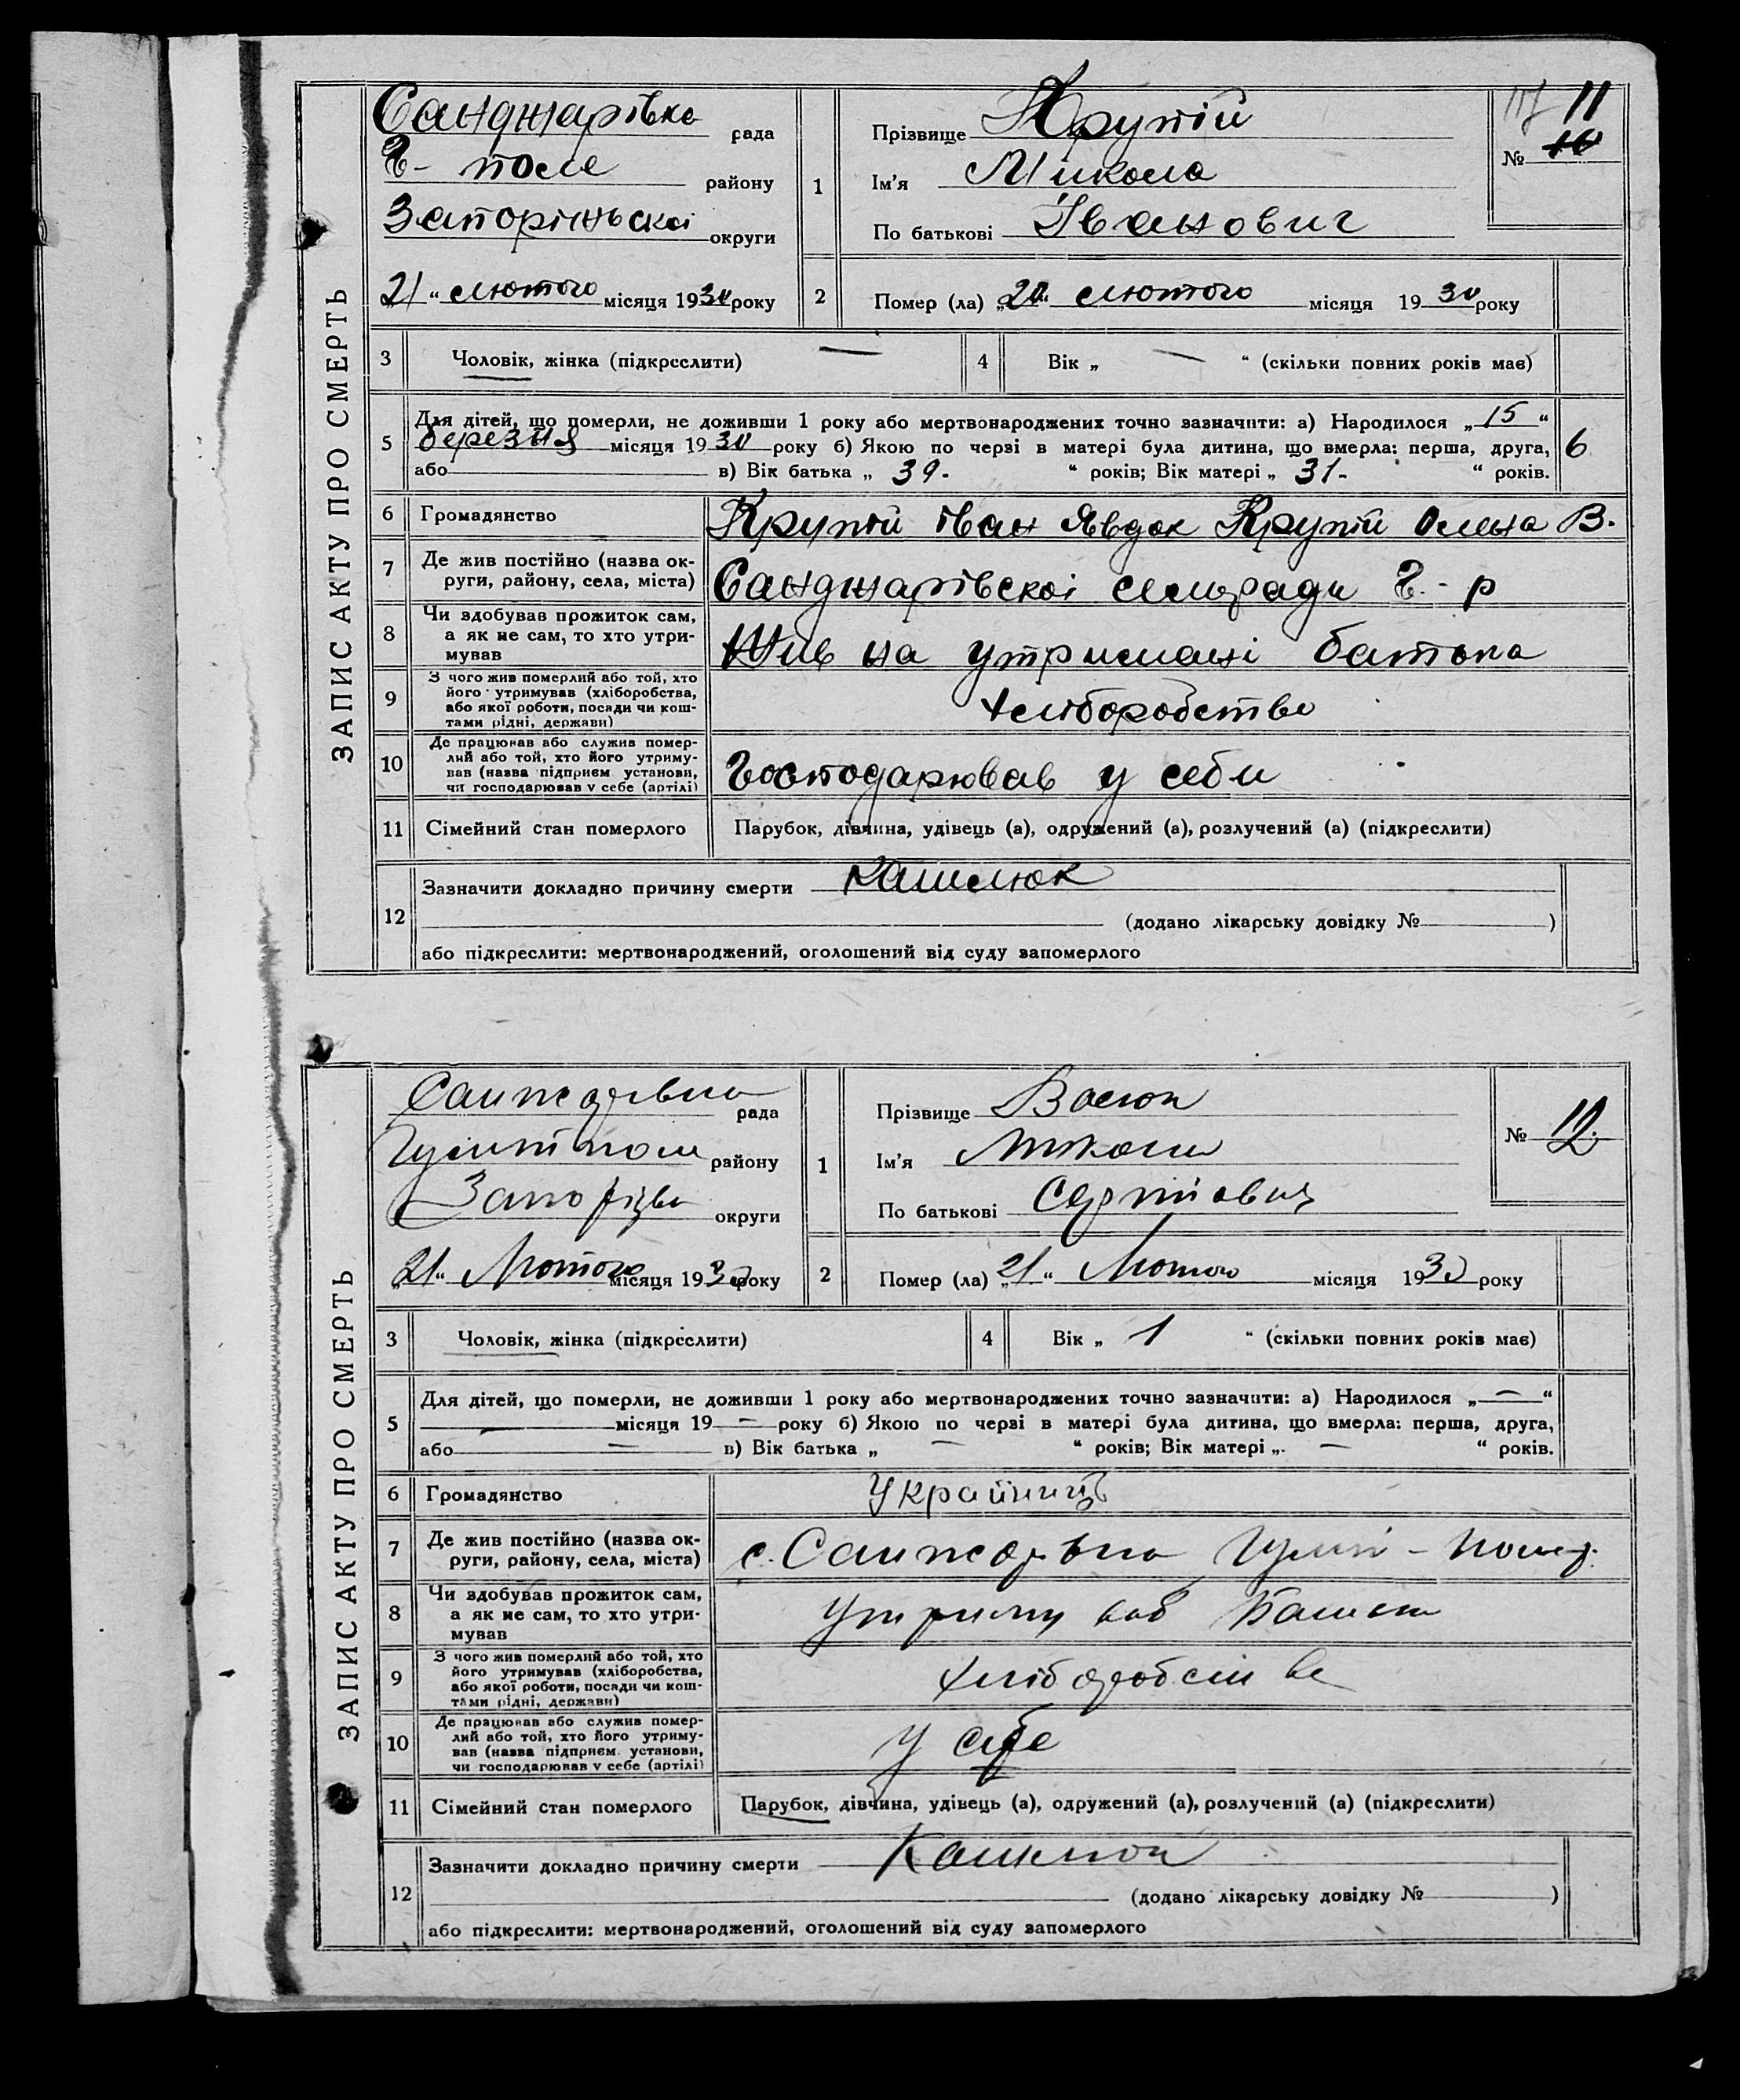 ЗАПИС АКТУ ПРО СМЕРТЬ
Санджарівка рада
Г- поле району
Запоріжської округи
„21“ лютого місяця 1930 року
1
Прізвище Крутій
Ім'я Микола
По батькові Іванович
№ 10 11
2 Помер (ла) „20“ лютого місяця 1930 року
3 Чоловік, жінка (підкреслити) —
4 Вік „ — “ (скільки повних років має)
5 Для дітей, що померли, не доживши 1 року або мертвонароджених точно зазначити: а) Народилося „15“
березня місяця 1930 року б) Якою по черзі в матері була дитина, що вмерла: перша, друга, 6
або в) Вік батька „ 39. “ років; Вік матері „ 31- “ років.
6 Громадянство Крутій іван Явдок Крутій Олена В.
7 Де жив постійно (назва ок-
руги, району, села, міста) Санджарівскоі сельради Г.- р
8 Чи здобував прожиток сам,
а як не сам, то хто утри-
мував Жив на утримані батька
9 З чого жив померлий або той, хто
його утримував (хліборобства,
або якої роботи, посади чи кош-
тами рідні, держави) хліборобство
10 Де працював або служив помер-
лий або той, хто його утриму-
вав (назва підприєм. установи,
чи господарював у себе (артілі) Господарював у себи
11 Сімейний стан померлого Парубок, дівчина, удівець (а), одружений (а), розлучений (а) (підкреслити)
12 Зазначити докладно причину смерти Кашлюк
(додано лікарську довідку № )
або підкреслити: мертвонароджений, оголошений від суду запомерлого
ЗАПИС АКТУ ПРО СМЕРТЬ
рада
району
округи
„21“ Лютого місяця 1930 року
1
Прізвище Васюк
Ім'я
По батькові
№ 12.
2 Помер (ла) „21“ Лютого місяця 1930 року
3 Чоловік, жінка (підкреслити)
4 Вік „ 1 “ (скільки повних років має)
5 Для дітей, що померли, не доживши 1 року або мертвонароджених точно зазначити: а) Народилося „—“
— місяця 19 — року б) Якою по черзі в матері була дитина, що вмерла: перша, друга,
або — в) Вік батька „ — “ років; Вік матері „ — “ років.
6 Громадянство Українець
7 Де жив постійно (назва ок-
руги, району, села, міста) с.
8 Чи здобував прожиток сам,
а як не сам, то хто утри-
мував утримував
9 З чого жив померлий або той, хто
його утримував (хліборобства,
або якої роботи, посади чи кош-
тами рідні, держави) хліборобство
10 Де працював або служив помер-
лий або той, хто його утриму-
вав (назва підприєм. установи,
чи господарював у себе (артілі) у себе
11 Сімейний стан померлого Парубок, дівчина, удівець (а), одружений (а), розлучений (а) (підкреслити)
12 Зазначити докладно причину смерти Кашлюк
(додано лікарську довідку № )
або підкреслити: мертвонароджений, оголошений від суду запомерлого